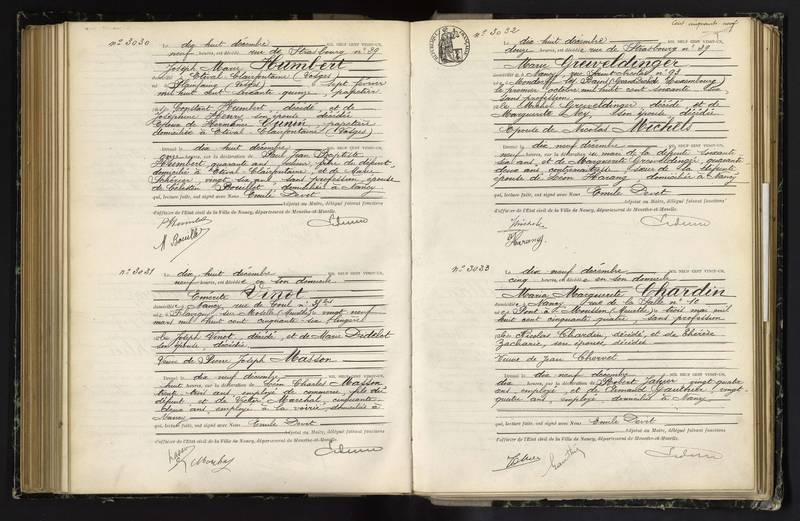 nº 3030
Le dix huit décembre MIL NEUF CENT VINGT-UN,
neuf heures, est décédé rue de Strasbourg nº 39
Joseph Marie Humbert
domicilié à Etival Clairefontaine (Vosges)
né à (Vosges) sept février
mil huit cent soixante quinze, papetier
de Constant Humbert, décédé et de
Joséphine Henry son épouse décédée
Epoux de Hermine Cunin, papetière
domiciliée à Etival Clairefontaine (Vosges)
Dressé le dix huit décembre MIL NEUF CENT VINGT-UN,
onze heures, sur la déclaration de Paul Jean Baptiste
Humbert quarante ans frère du défunt,
domicilié à Etival Clairefontaine, et de Marie
vingt six ans, sans profession, épouse
de Célestin Bouillet domiciliée à Nancy
qui, lecture faite, ont signé avec Nous Emile Devit
Adjoint au Maire, délégué faisant fonctions
d'officier de l'Etat civil de la Ville de Nancy, département de Meurthe-et-Moselle.
P Humbert
M. Bouillet
nº 3031
Le dix huit décembre MIL NEUF CENT VINGT-UN,
neuf heures, est décédée en son domicile
Vinot
domiciliée à Nancy rue de Toul nº
née à Flavigny sur Moselle (Meurthe) vingt neuf
mars mil huit cent cinquante six lingère
de Joseph Vinot décédé et de Marie Didelot
son épouse, décédée
Veuve de Pierre Joseph Masson
Dressé le dix neuf décembre MIL NEUF CENT VINGT-UN,
huit heures, sur la déclaration de Léon Charles Masson
trente trois ans, employé de commerce, fils du
défunt et de Victor Maréchal, cinquante
deux ans, employé à la voirie domiciliés à
Nancy
qui, lecture faite, ont signé avec Nous Emile Devit
Adjoint au Maire, délégué faisant fonctions
d'officier de l'Etat civil de la Ville de Nancy, département de Meurthe-et-Moselle.
Cent cinquante neuf
nº 3032
Le dix huit décembre MIL NEUF CENT VINGT-UN,
douze heures, est décédée rue de Strasbourg nº 39
Marie Greweldinger
domiciliée à Nancy, rue Saint Nicolas nº 93
née à Mondorff les Bains (Grand Duché Luxembourg)
le premier octobre mil huit cent soixante
sans profession
de Michel Greweldinger décédé et de
Marguerite son épouse décédée
Epouse de Nicolas Michels
Dressé le dix neuf décembre MIL NEUF CENT VINGT-UN,
neuf heures, sur la déclaration du mari de la défunte soixante
six ans, et de Marguerite Greweldinger, quarante
deux ans, soeur de la défunte
épouse de Léon Harang domiciliés à Nancy
qui, lecture faite, ont signé avec Nous Emile Devit
Adjoint au Maire, délégué faisant fonctions
d'officier de l'Etat civil de la Ville de Nancy, département de Meurthe-et-Moselle.
Michels
Harang
nº 3033
Le dix neuf décembre MIL NEUF CENT VINGT-UN,
cinq heures, est décédée en son domicile
Maria Marguerite Chardin
domiciliée à Nancy, rue de la Salle nº 10
née à Pont à Mousson (Meurthe) le trois mai mil
huit cent cinquante quatre sans profession
de Nicolas Chardin, décédé, et de Thérèse
Zacharie, son épouse, décédée
Veuve de Jean Chouvet
Dressé le dix neuf décembre MIL NEUF CENT VINGT-UN,
dix heures, sur la déclaration de Robert vingt quatre
ans employé et de vingt
quatre ans, employé, domiciliés à Nancy
qui, lecture faite, ont signé avec Nous Emile Devit
Adjoint au Maire, délégué faisant fonctions
d'officier de l'Etat civil de la Ville de Nancy, département de Meurthe-et-Moselle.